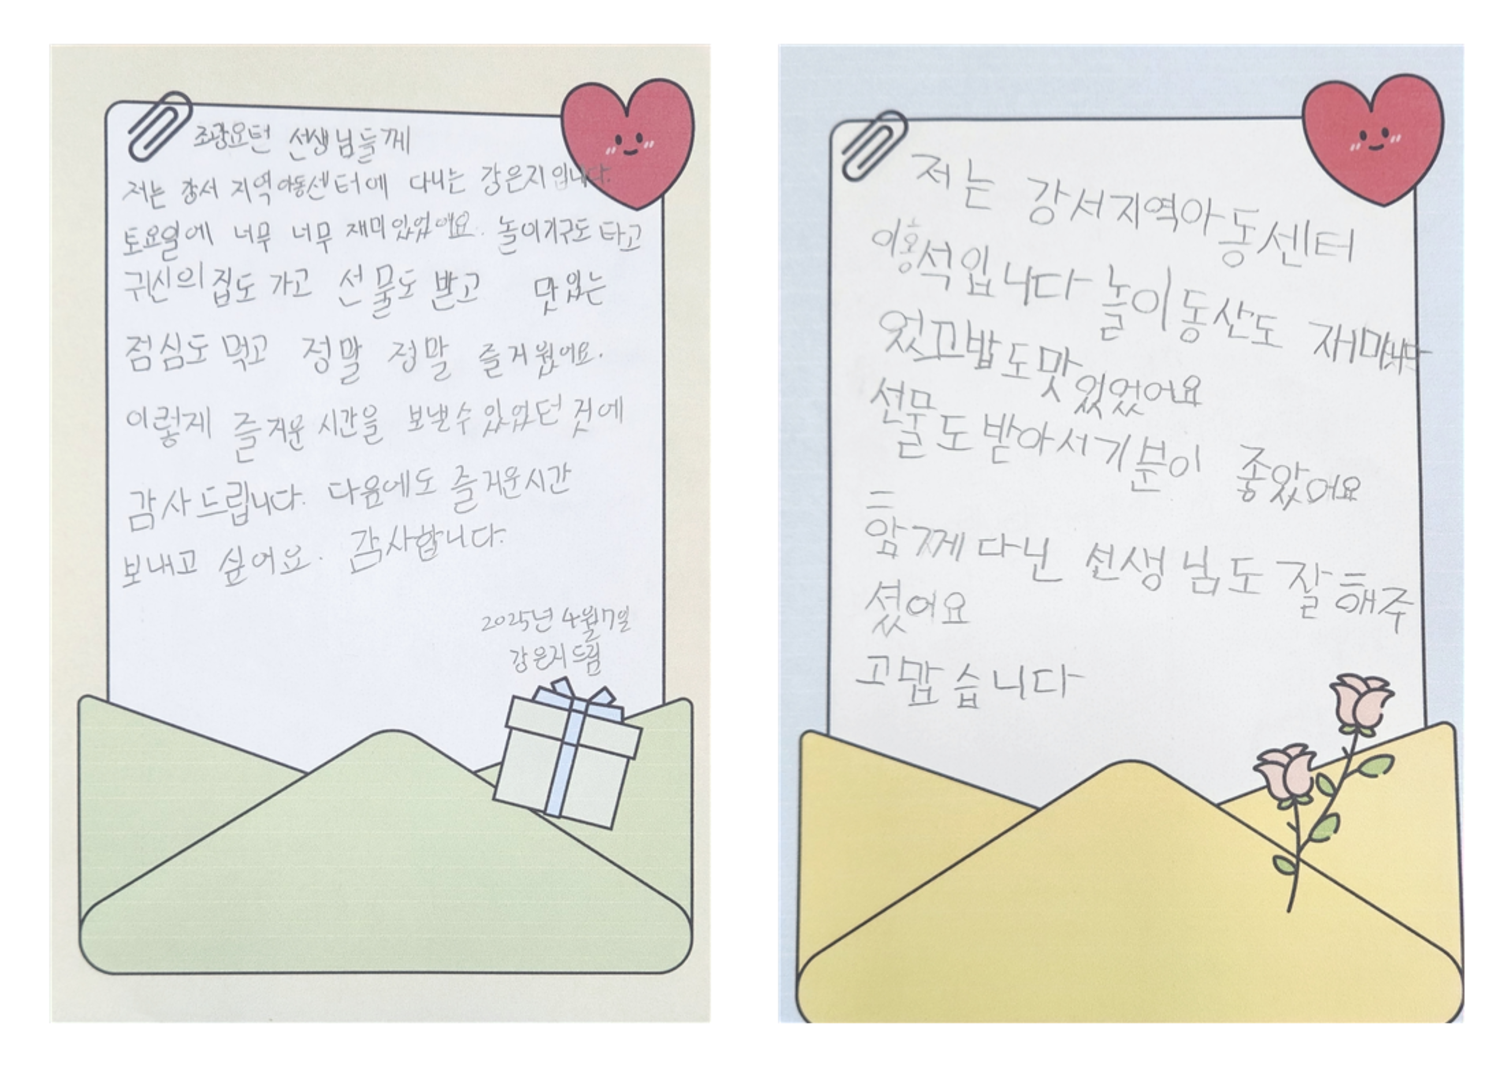 조광요턴 선생님들께
저는 강서 지역아동센터에 다니는 강은지입니다.
토요일에 너무 너무 재미있었어요. 놀이기구도 타고
귀신의집도 가고 선물도 받고 맛있는
점심도 먹고 정말 정말 즐거웠어요.
이렇게 즐거운 시간을 보낼수있었던 것에
감사드립니다. 다음에도 즐거운시간
보내고 싶어요. 감사합니다.
2025년 4월7일
강은지드림
저는 강서지역아동센터
이홍석입니다 놀이동산도 재미
있고밥도맛있었어요
선물도받아서기분이 좋았어요
함께다닌 선생님도 잘해주
셨어요
고맙습니다